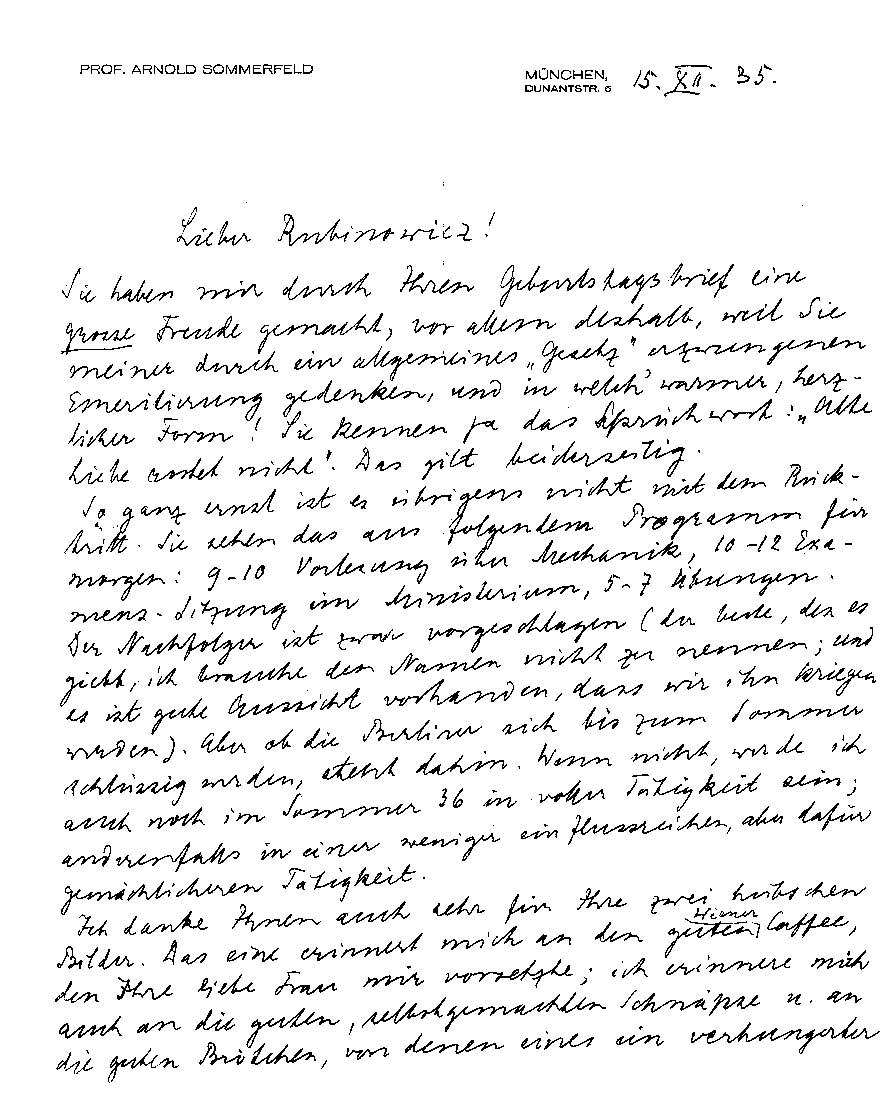 PROF. ARNOLD SOMMERFELD
MÜNCHEN, 15. XII. 35.
DUNANTSTR. 6
Lieber Rubinowicz!
Sie haben mir durch Ihren Geburtstagsbrief eine
grosse Freude gemacht, vor allem deshalb, weil Sie
meiner durch ein allgemeines „Gesetz" erzwungenen
Emeritierung gedenken, und in welch' warmer, herz-
licher Form! Sie kennen ja das Sprüchwort: „Alte
Liebe rostet nicht". Das gilt beiderseitig.
So ganz ernst ist es übrigens nicht mit dem Rück-
tritt. Sie sehen das aus folgendem Programm für
morgen: 9-10 Vorlesung über Mechanik, 10-12 Exa-
mens-Sitzung im Ministerium, 5-7 Übungen.
Der Nachfolger ist zwar vorgeschlagen (der beste, den es
giebt, ich brauche den Namen nicht zu nennen; und
es ist gute Aussicht vorhanden, dass wir ihn kriegen
werden). Aber ob die Berliner sich bis zum Sommer
schlüssig werden, steht dahin. Wenn nicht, werde ich
auch noch im Sommer 36 in voller Tätigkeit sein;
anderenfalls in einer weniger einflussreichen, aber dafür
gemächlicheren Tätigkeit.
Ich danke Ihnen auch sehr für Ihre zwei hübschen
Bilder. Das eine erinnert mich an den guten Wiener Caffee,
den Ihre liebe Frau mir vorsetzte; ich erinnere mich
auch an die guten, selbstgemachten Schnäpse u. an
die guten Brötchen, von denen eines ein verhungerter